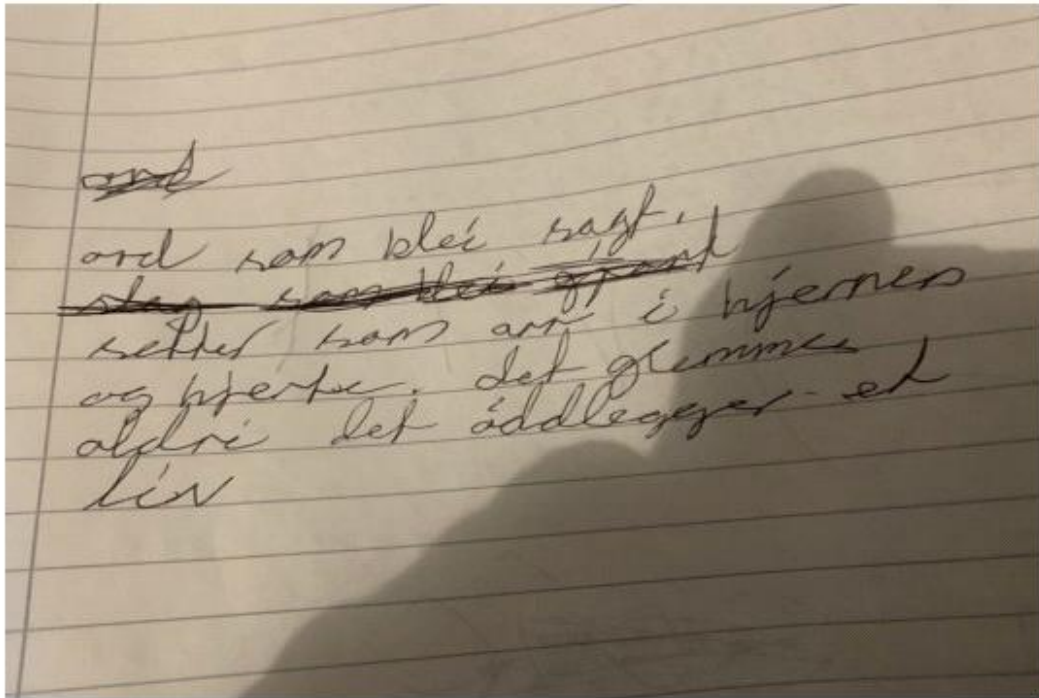 ord
ord som blei sagt.
slag som blei gjort
setter som arr i hjernen
og hjerte. det glemmes
aldri det øddlegger et
liv